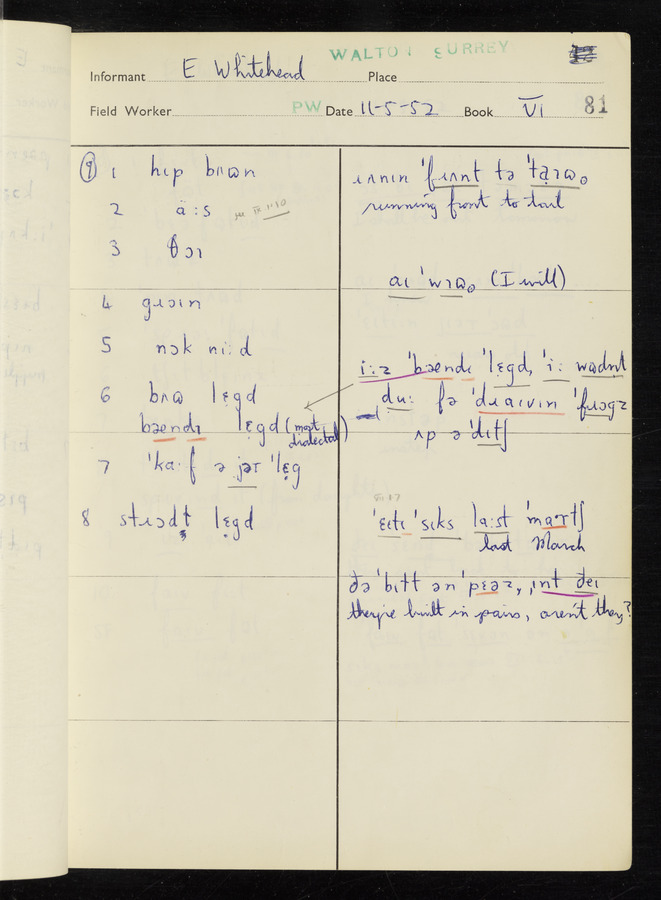 WALTON SURREY
Informant E Whitehead Place
Field Worker PW Date 11-5-52 Book VI 81
9 1 hɪp bɹɷn
2 ä:s see IX 1·10
3 θɔɪ
4 gɹɔɪn
5 nɔk ni:d
6 bɹɷ lɛ̣gd
bæendɪ lɛ̣gd (most dialectal)
7 ˈka:f ə jəɾ ˈlɛ̣g
8 stɹɔdt̩ lɛ̣gd
ɹʌnɪn ˈfɹʌnt tə ˈtạɪɷ
running front to tail
aɪ ˈwɪɷ (I will)
i:z ˈbæendɪ ˈlɛgd, ˈi: wɷdnt
du: fə ˈdɹaɪvɪn ˈfɹɔgz
ʌp ə ˈdɪtʃ
VIII 17
ˈɛɪtɪ ˈsɪks la:st ˈmaɾtʃ
last March
ðə ˈbɪlt ən ˈpɛəz, ɪnt ðeɪ
they're built in pairs, aren't they?